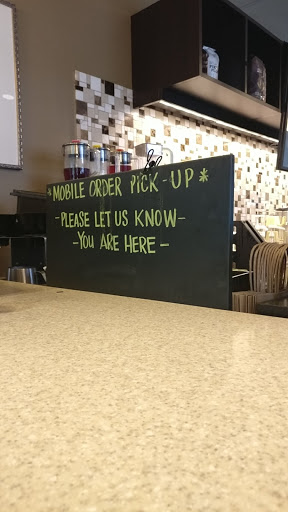 *MOBILE ORDER PICK-UP*
-PLEASE LET US KNOW-
-YOU ARE HERE-